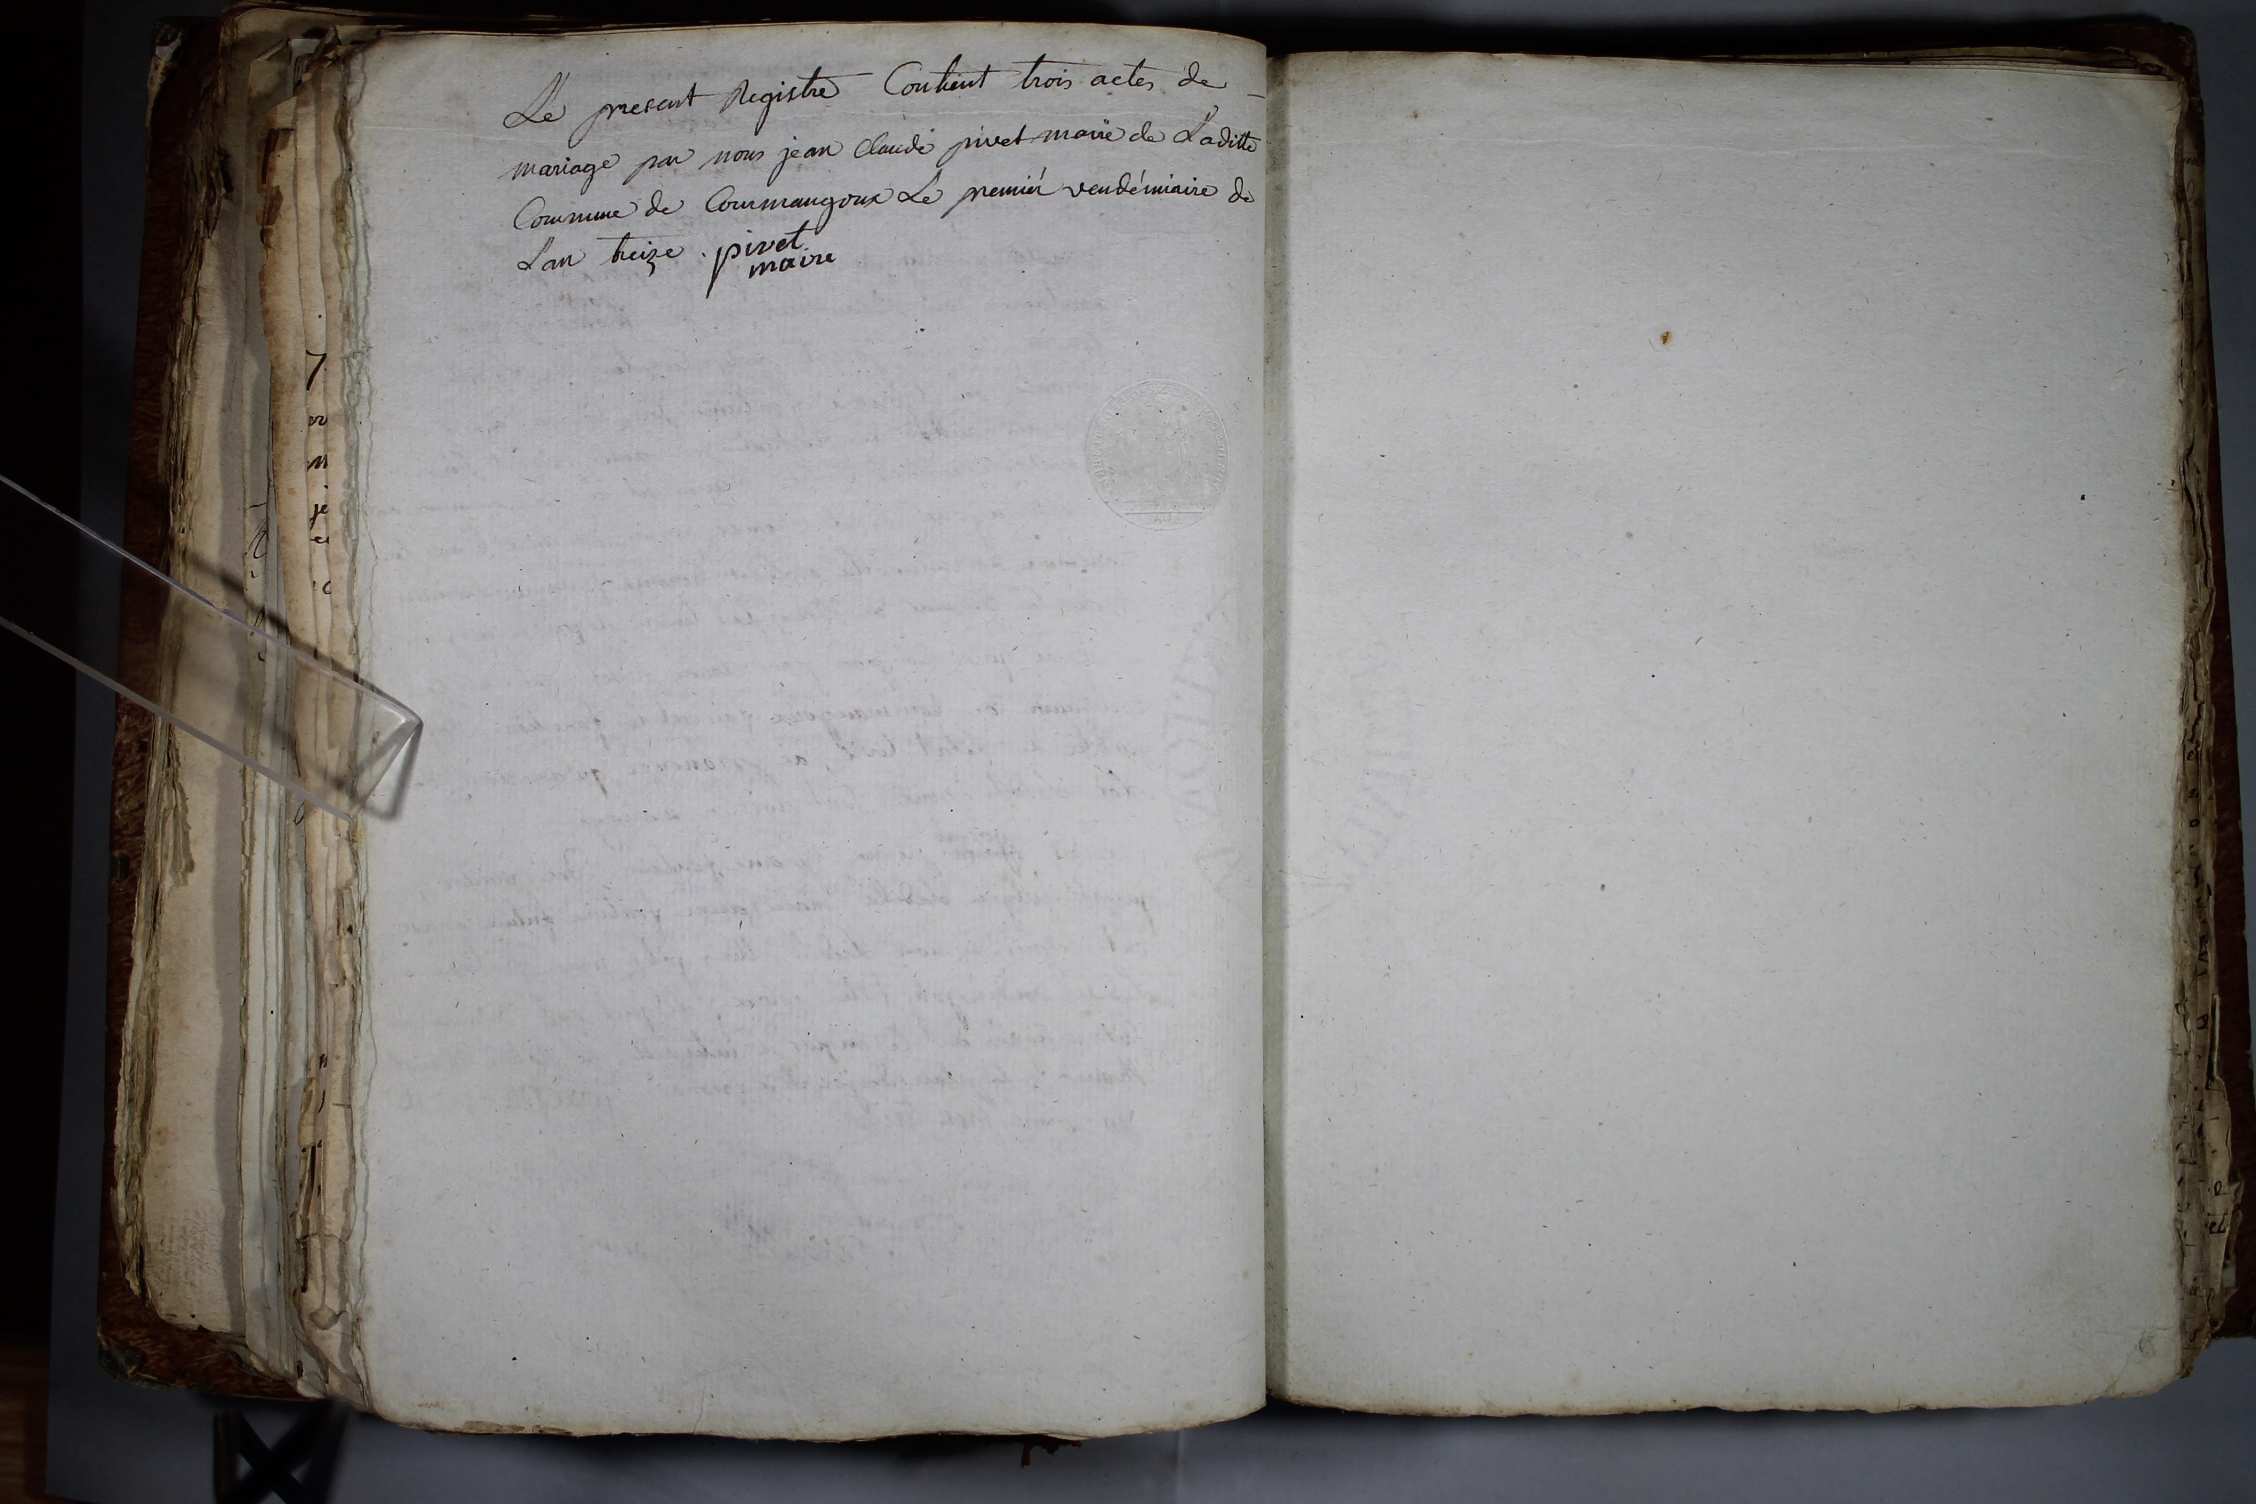 Le present Registre Contient trois actes de
mariage par nous jean Claude pivet maire de Laditte
Commune de Courmangoux Le premiér vendémiaire de
Lan treize . pivet
maire